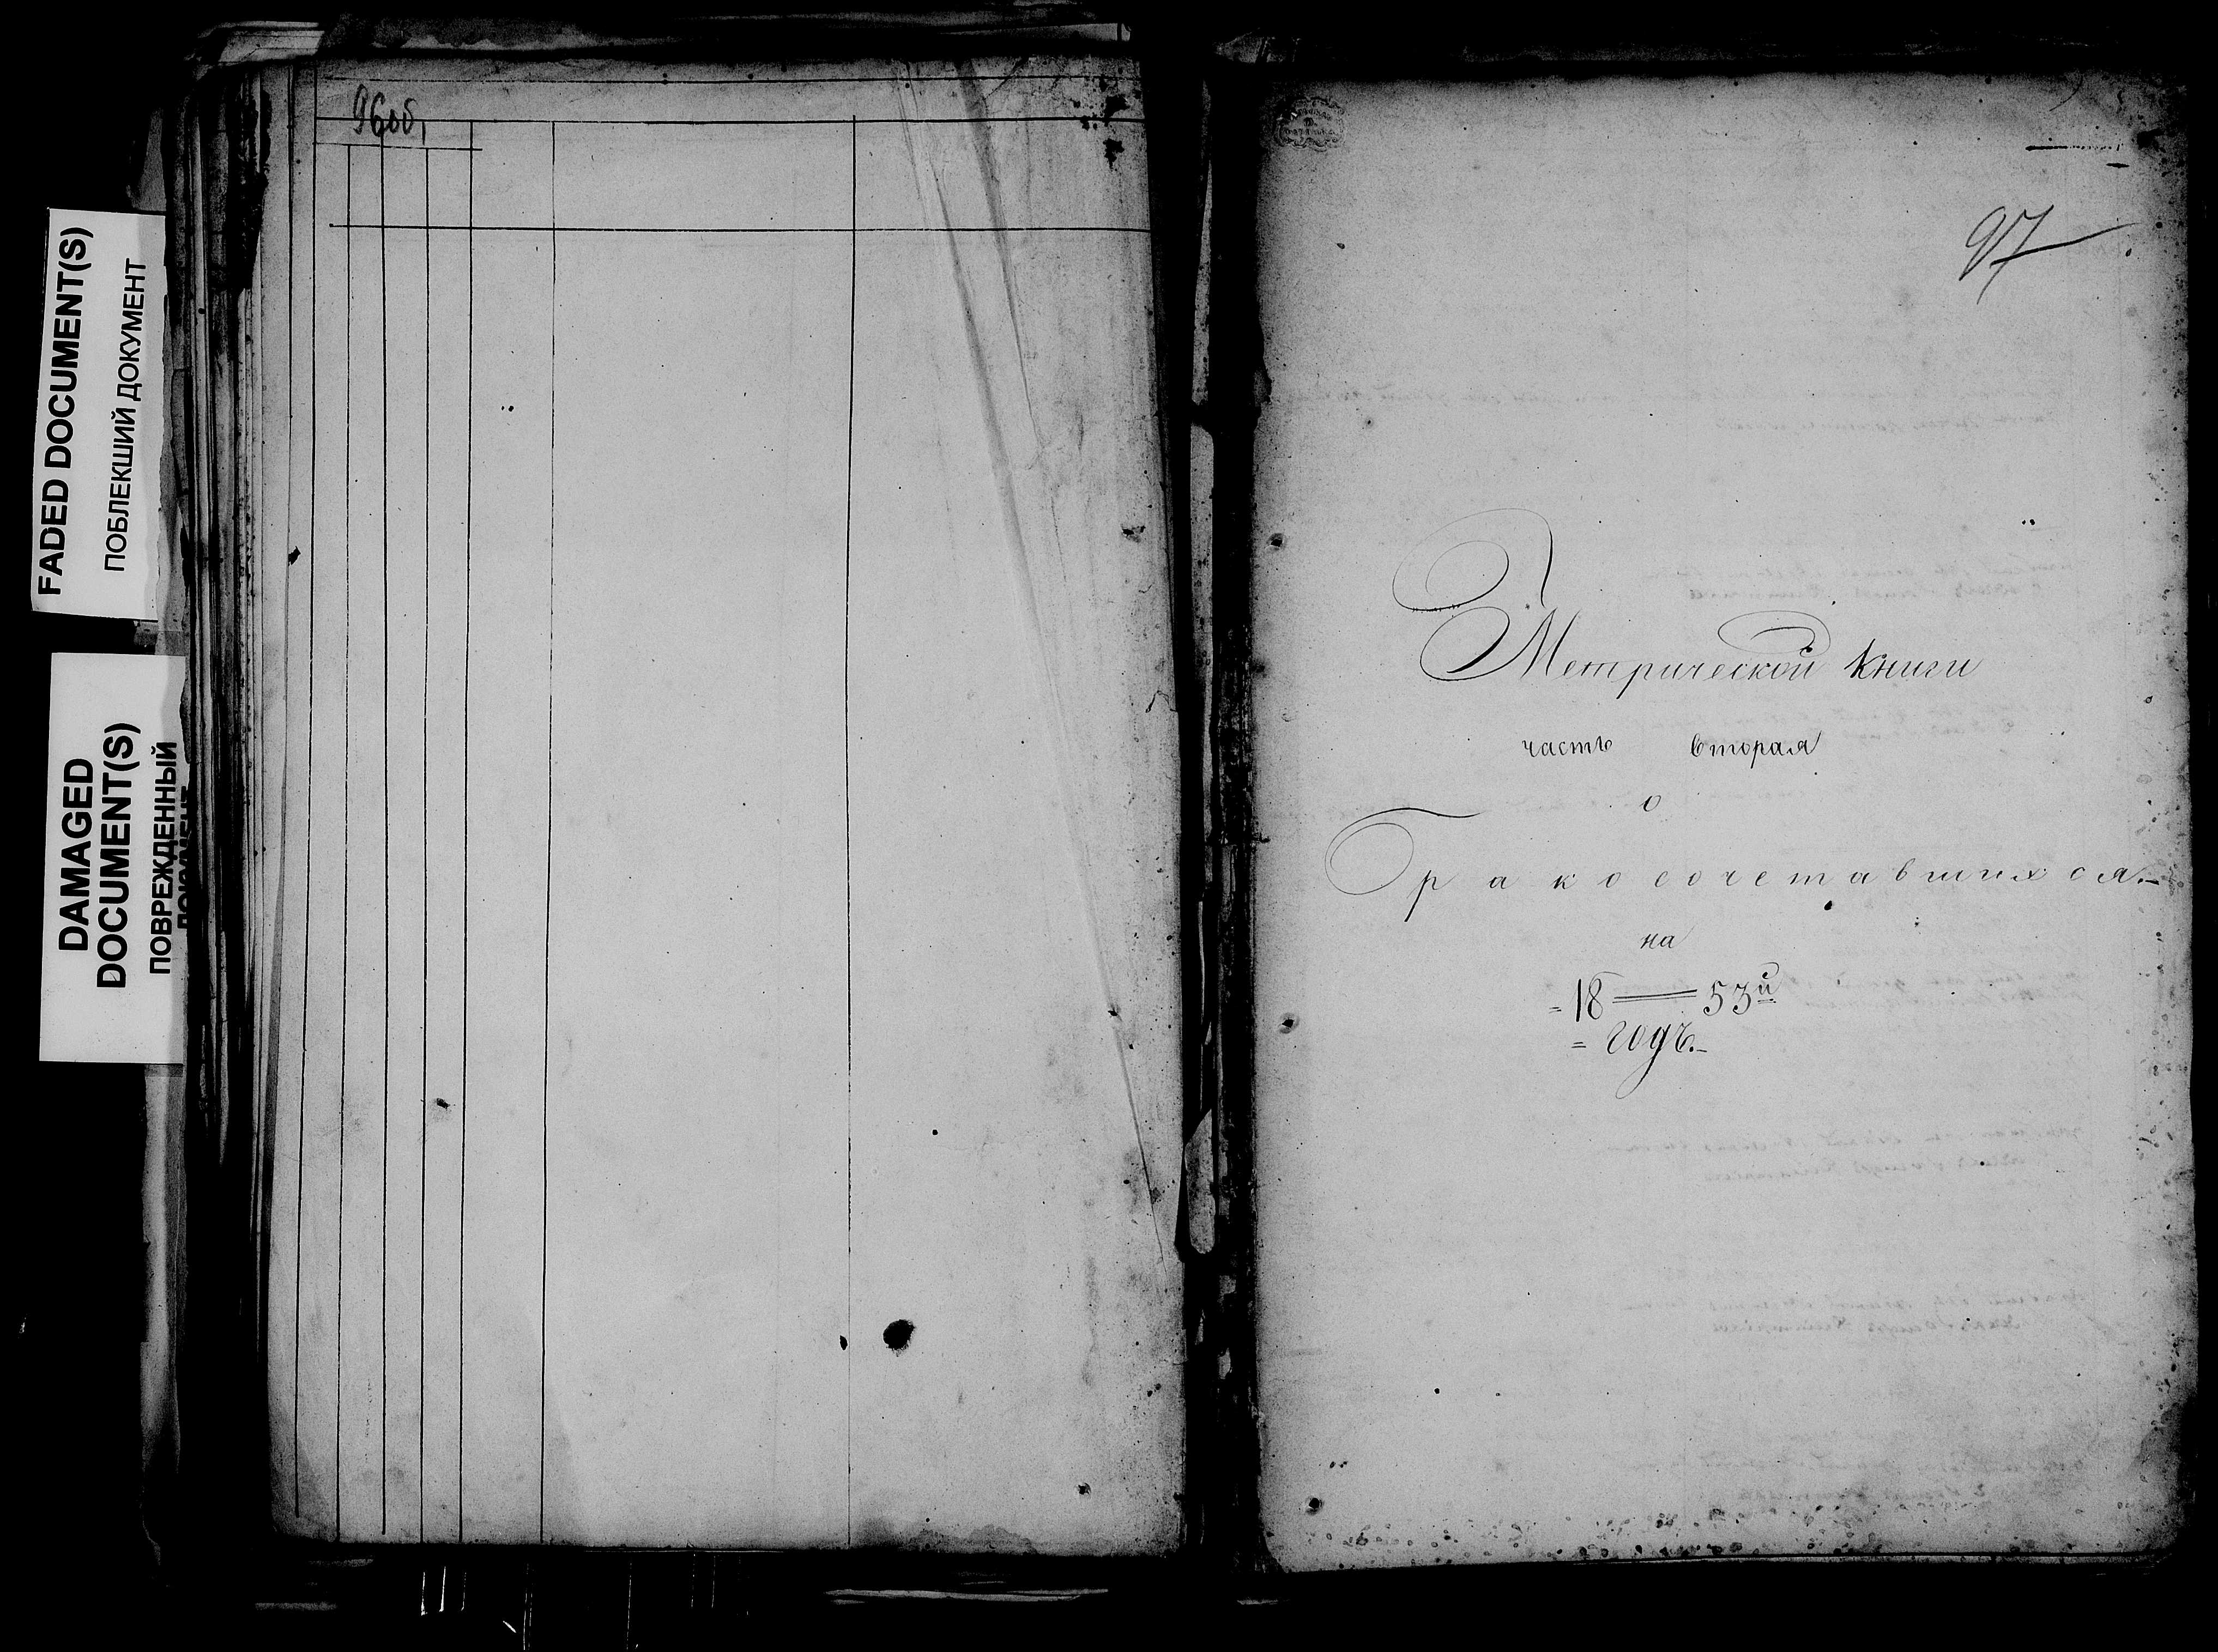 FADED DOCUMENT(S)
ПОБЛЕКШИЙ ДОКУМЕНТ
DAMAGED
DOCUMENT(S)
ПОВРЕЖДЕННЫЙ
ДОКУМЕНТ
96 об,
97
Метрической книги
часть вторая
о
Бракосочетавшихся.
на
= 18 == 53й
= годъ.